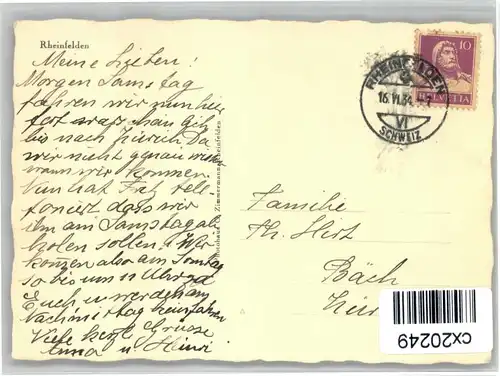 Rheinfelden
Meine Lieben!
Morgen Samstag
fahren wir nun hier
fort
bis nach Zürich Da
wir nicht genau wissen
wann wir kommen.
Nun hat Fritz tele-
foniert dass wir
ihn am Samstag ab
holen sollen. Wir
kommen also am Sonntag
so bis um 11 Uhr zu
Euch u. werden am
Nachmittag heimfahren
Viele herzl. Grüsse
Anna u. Heini
Zimmermann, Rheinfelden
RHEINFELDEN
16.VI.34
VI
SCHWEIZ
10
HELVETIA
Familie
Th. Hirt
Bäch
cx20249